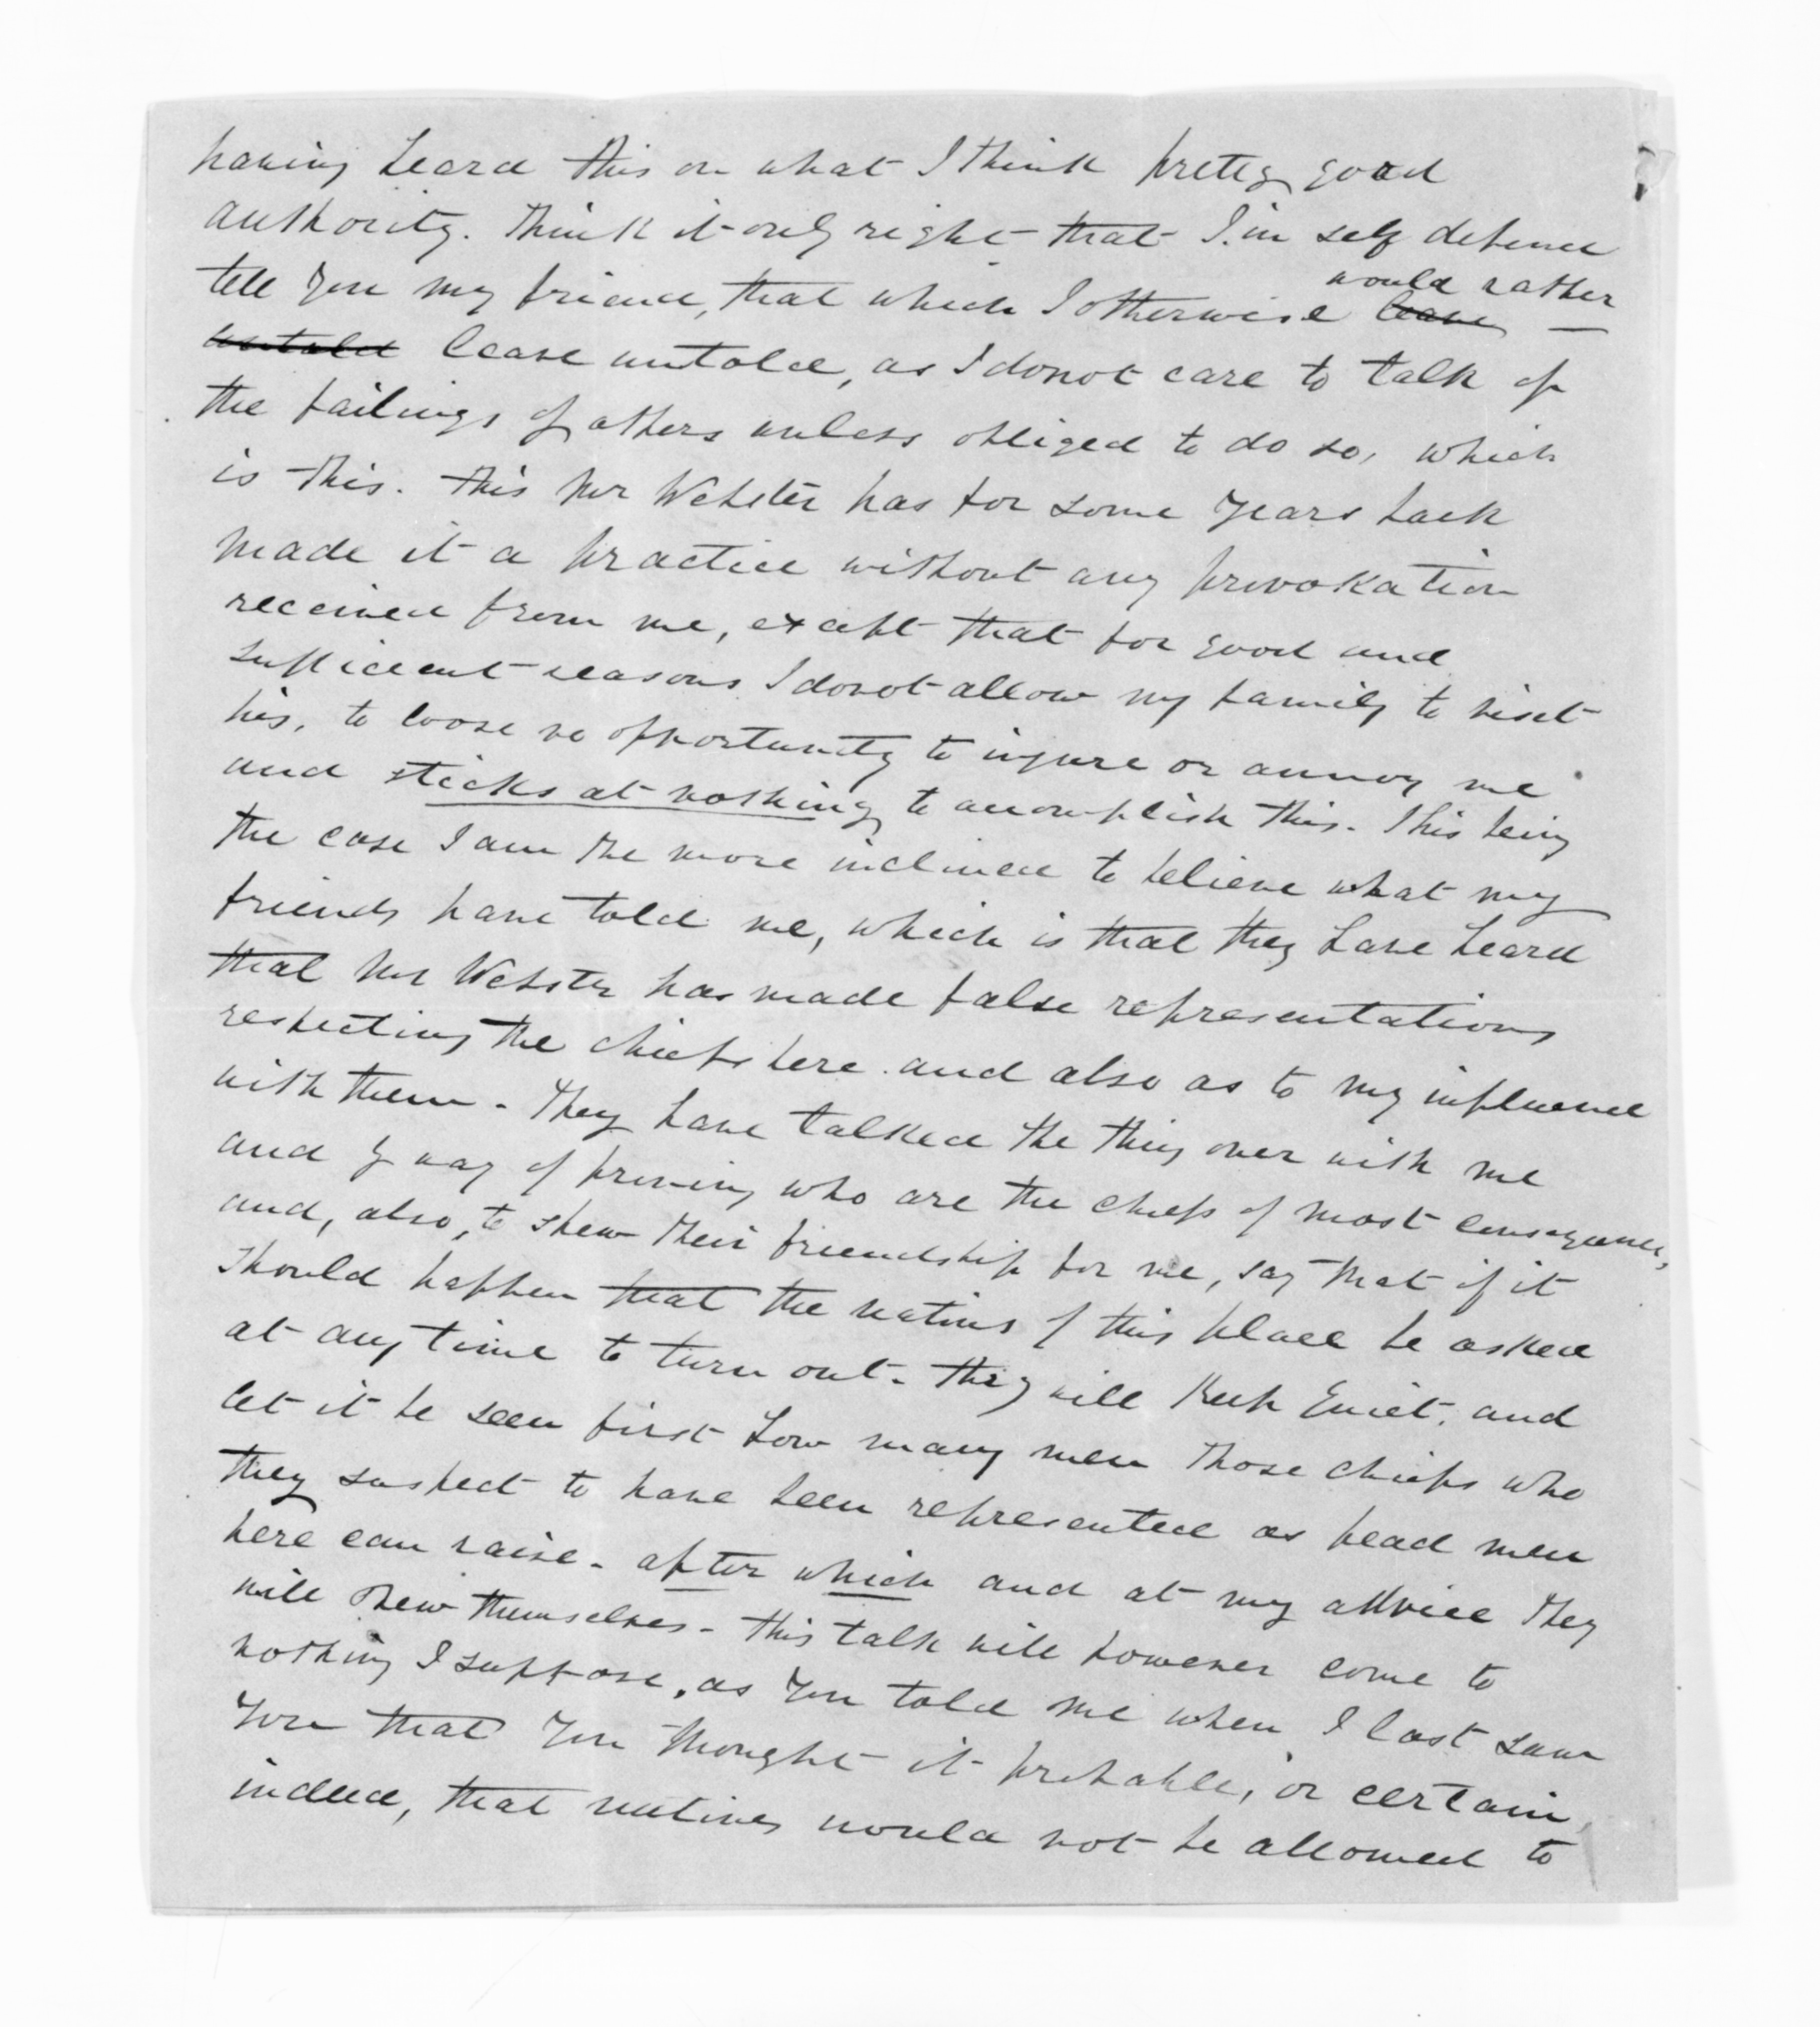 having heard this on what I think pretty good
authority. Think it only right that I in self defence
tell you my friend, that which I otherwise leave would rather
untold leave untold, as I donot care to talk of
the failings of others unless obliged to do so, which
is this. This Mr Webster has for some years back
made it a practice without any provokation
received from me, except that for good and
sufficient reasons I donot allow my family to visit
his, to loose no opportunity to injure or annoy me
and sticks at nothing to accomplish this. This being
the case I am the more inclined to believe what my
friends have told me, which is that they have heard
that Mr Webster has made false representations
respecting the chiefs here and also as to my influence
with them - They have talked the thing over with me
and by way of proving who are the chiefs of most consequence,
and, also, to shew their friendship for me, say that if it
should happen that the natives of this place be asked
at any time to turn out - they will keep quiet, and
let it be seen first how many men those chiefs who
they suspect to have been represented as head men
here can raise - after which and at my advice they
will shew themselves - This talk will however come to
nothing I suppose, as you told me when I last saw
you that you thought it probable, or certain,
indeed, that natives would not be allowed to